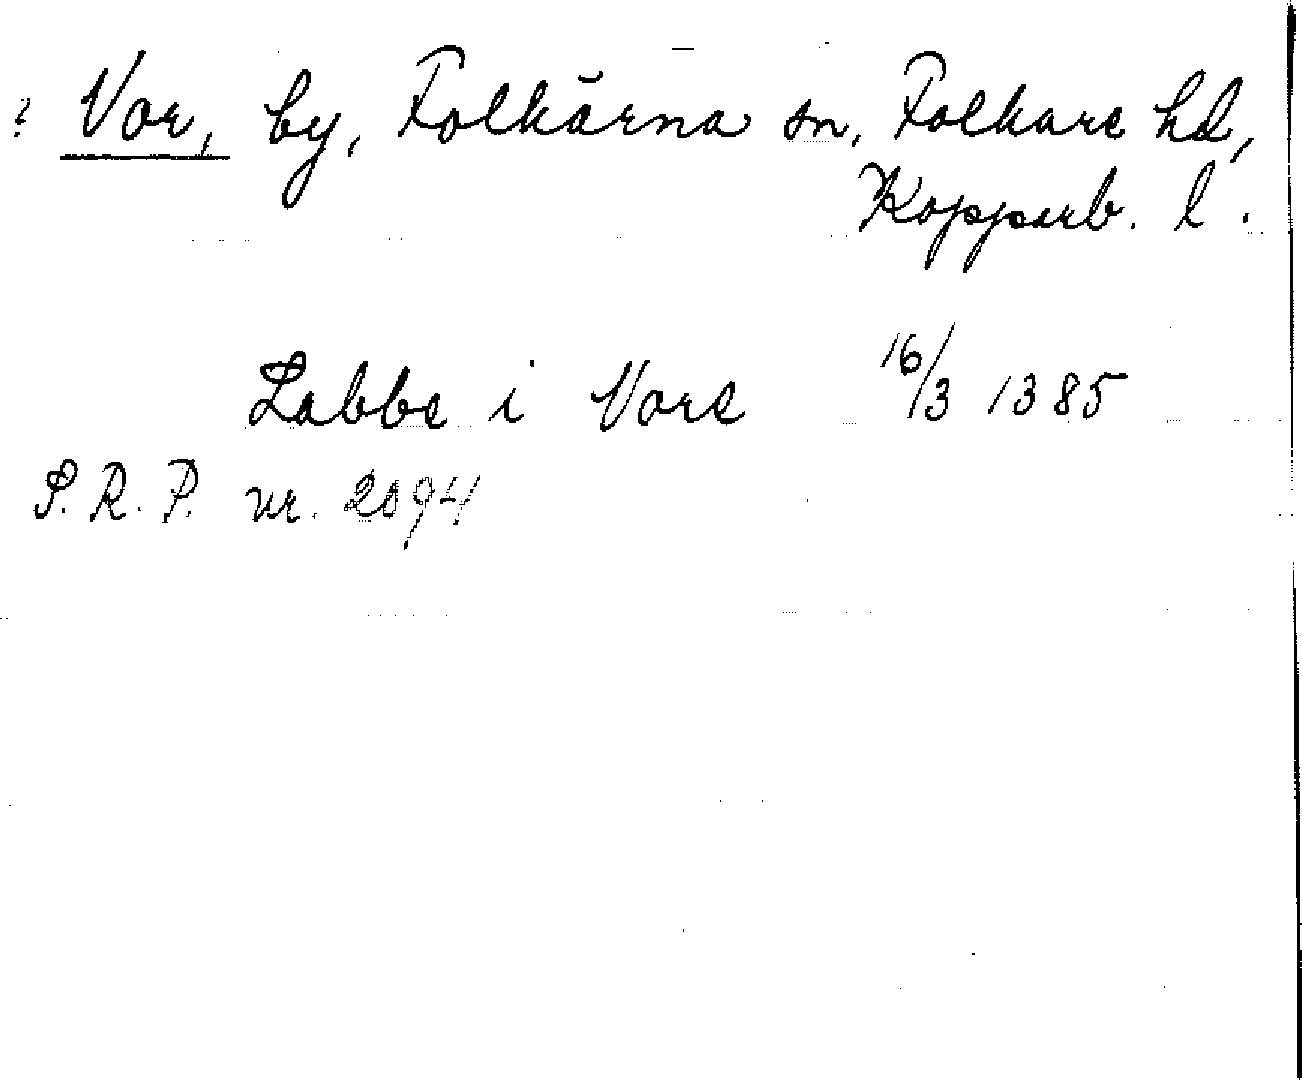 ? Vor, by, Folkärna sn, Folkare hd,
Kopparb. l.
Labbe i Vore 16/3 1385
S.R.P. nr. 2094